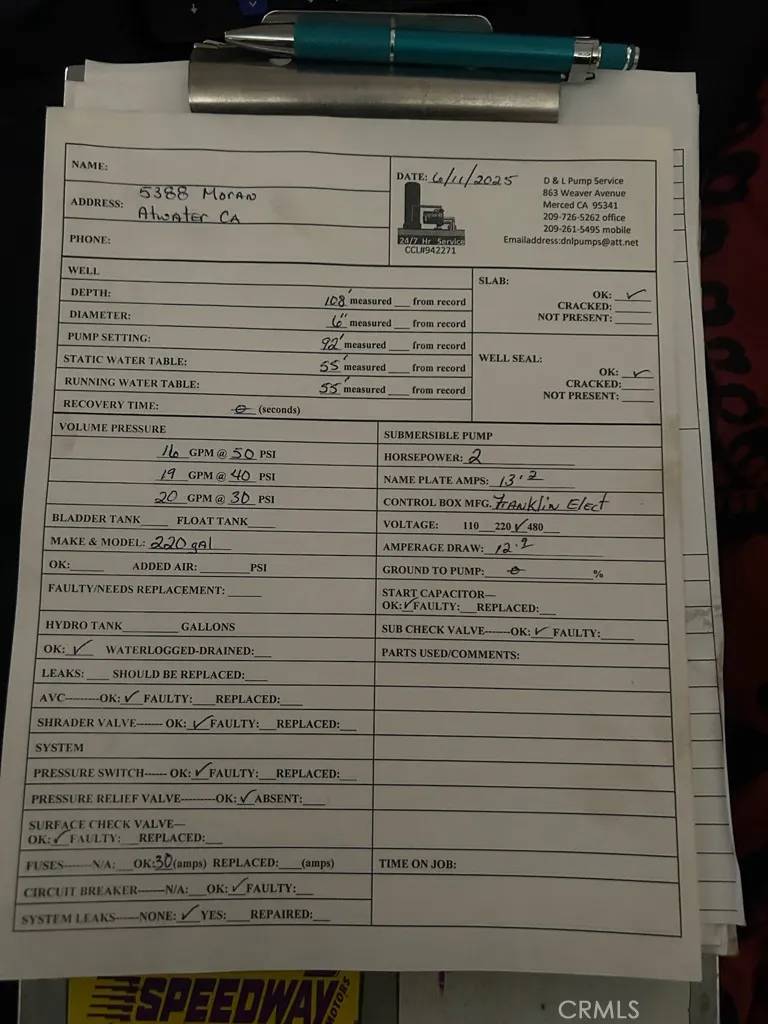 NAME:
ADDRESS: 5388 Moran
Atwater CA
PHONE:
DATE: 6/11/2025
24/7 Hr Service
CCL#942271
D & L Pump Service
863 Weaver Avenue
Merced CA 95341
209-726-5262 office
209-261-5495 mobile
Emailaddress:dnlpumps@att.net
WELL
DEPTH: 108' measured ___ from record
DIAMETER: 6" measured ___ from record
PUMP SETTING: 92' measured ___ from record
STATIC WATER TABLE: 55' measured ___ from record
RUNNING WATER TABLE: 55' measured ___ from record
RECOVERY TIME: 0 (seconds)
SLAB:
OK: ✓
CRACKED:
NOT PRESENT:
WELL SEAL:
OK: ✓
CRACKED:
NOT PRESENT:
VOLUME PRESSURE
16 GPM @ 50 PSI
19 GPM @ 40 PSI
20 GPM @ 30 PSI
BLADDER TANK____ FLOAT TANK____
MAKE & MODEL: 220 gal
OK:_____ ADDED AIR:_______PSI
FAULTY/NEEDS REPLACEMENT: _____
HYDRO TANK________ GALLONS
OK: ✓ WATERLOGGED-DRAINED:__
LEAKS: ___ SHOULD BE REPLACED:___
AVC---------OK: ✓ FAULTY:__REPLACED:__
SHRADER VALVE------- OK: ✓ FAULTY:__REPLACED:__
SYSTEM
PRESSURE SWITCH------ OK: ✓ FAULTY:__REPLACED:__
PRESSURE RELIEF VALVE---------OK: ✓ ABSENT:___
SURFACE CHECK VALVE—
OK: ✓ FAULTY:__REPLACED:__
FUSES-------N/A:__OK:30(amps) REPLACED:___(amps)
CIRCUIT BREAKER-------N/A:__OK: ✓ FAULTY:__
SYSTEM LEAKS------NONE: ✓ YES:___REPAIRED:__
SUBMERSIBLE PUMP
HORSEPOWER: 2
NAME PLATE AMPS: 13.2
CONTROL BOX MFG. Franklin Elect
VOLTAGE: 110 220 ✓ 480__
AMPERAGE DRAW: 12.9
GROUND TO PUMP: 0 %
START CAPACITOR—
OK: ✓ FAULTY:__REPLACED:__
SUB CHECK VALVE-------OK: ✓ FAULTY:____
PARTS USED/COMMENTS:
TIME ON JOB:
SPEEDWAY
MOTORS
CRMLS